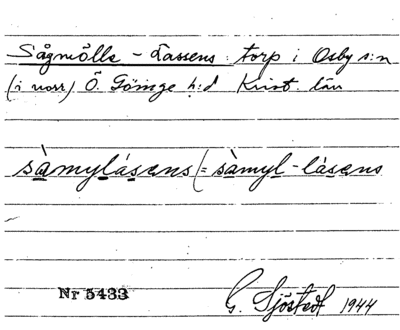 Sågmölle - Lassens : torp i Osby s:n
(i norr) Ö. Göinge h:d Krist. län
sàmylásens (= sàmyl - lásens
Nr 5433
G. Sjöstedt 1944